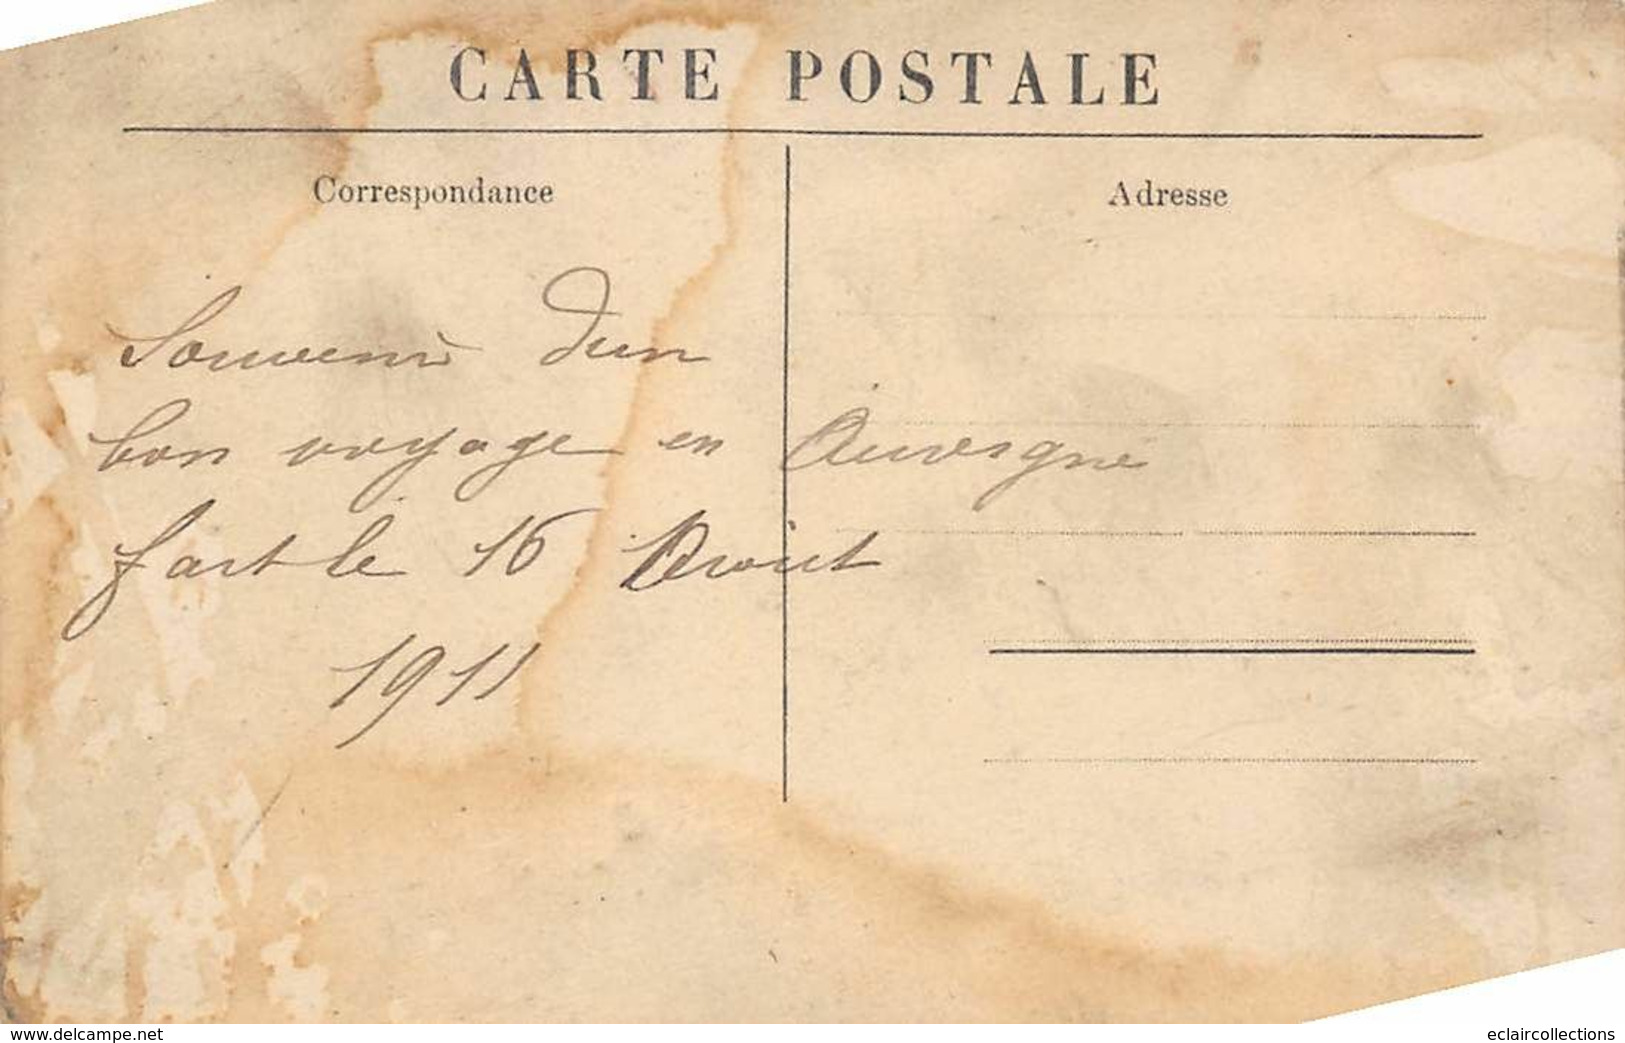 CARTE POSTALE
Correspondance
Adresse
Souvenir dun
bon voyage en Auvergne
fait le 16 Août
1911
www.delcampe.net
eclaircollections